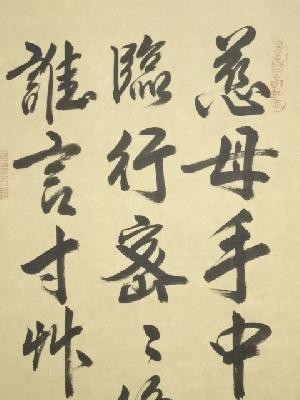 慈母手中
臨行密〻縫
誰言寸艸